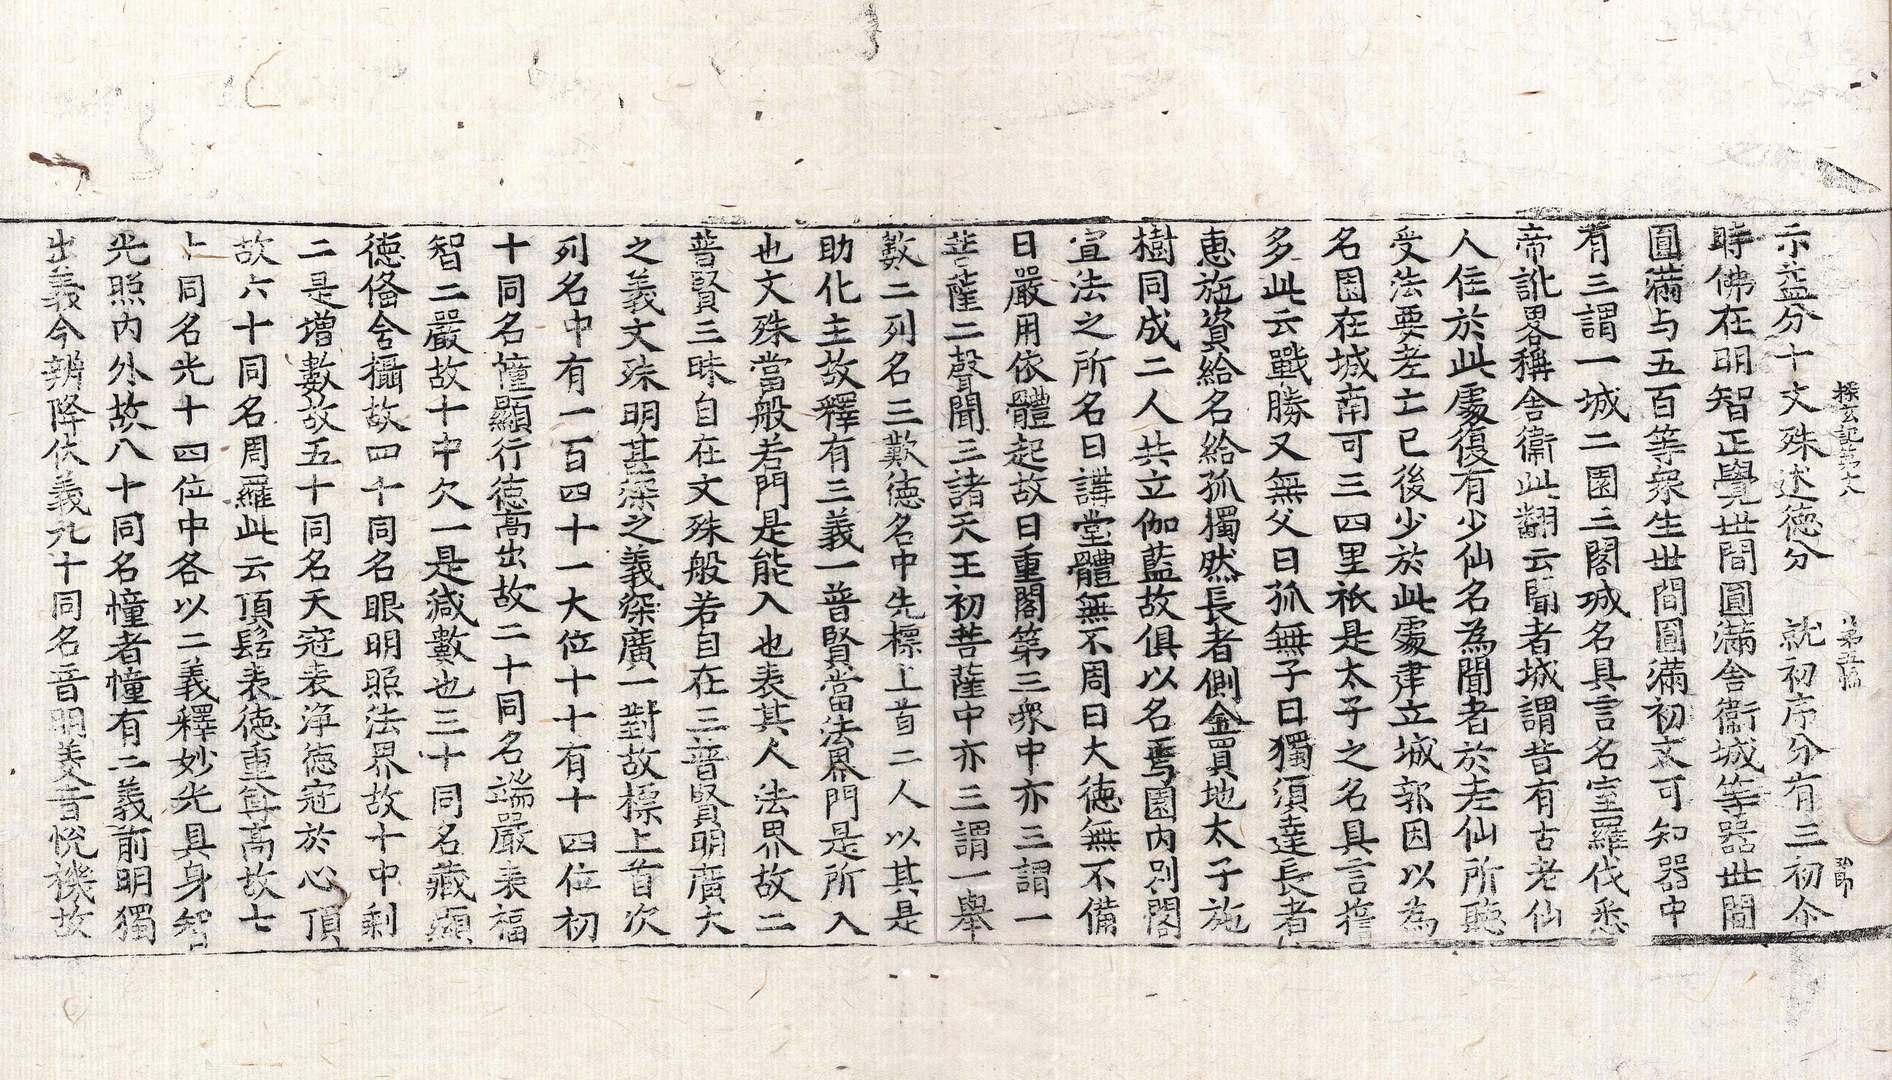 探玄記第十八 第五幅 孜郎
示益分十文殊述徳分 就初序分有三初今
時佛在明智正覺世間圓滿舍衛城等器世間
圓滿与五百等衆生世間圓滿初文可知器中
有三謂一城二園三閣城名具言名室羅伐悉
帝訛畧稱舍衛此翻云聞者城謂昔有古老仙
人住於此處復有少仙名為聞者於老仙所聽
受法要老亡已後少於此處建立城郭因以為
名園在城南可三四里祇是太子之名具言誓
多此云戰勝又無父曰孤無子曰獨湏達長者
惠施資給名給孤獨然長者側金買地太子施
樹同成二人共立伽藍故俱以名焉園内別閣
宣法之所名曰講堂體無不周曰大徳無不備
曰嚴用依體起故曰重閣第三衆中亦三謂一
菩薩二聲聞三諸天王初菩薩中亦三謂一舉
數二列名三歎徳名中先標上首二人以其是
助化主故釋有三義一普賢當法界門是所入
也文殊當般若門是能入也表其人法界故二
普賢三昧自在文殊般若自在三普賢明廣大
之義文殊明甚深之義深廣一對故標上首次
列名中有一百四十一大位十十有十四位初
十同名幢顯行徳高出故二十同名端嚴表福
智二嚴故十中欠一是減數也三十同名藏顯
徳俻含攝故四十同名眼明照法界故十中剩
二是增數故五十同名天冠表淨徳冠於心頂
故六十同名周羅此云頂髻表徳重尊高故七
十同名光十四位中各以二義釋妙光具身智
光照内外故八十同名幢者幢有二義前明獨
出義今辨降伏義九十同名音明美音悅機故